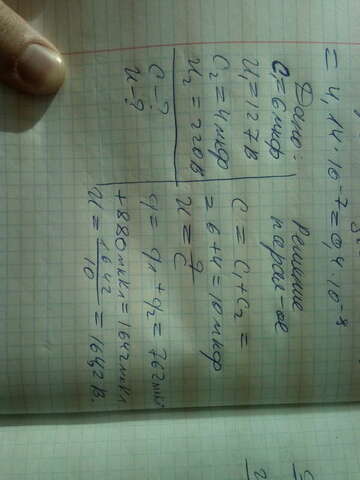 = 4,14·10⁻⁷ = 0,4·10⁻⁸
Дано:
C₁ = 6мкф
U₁ = 127В
C₂ = 4мкф
U₂ = 220В
C - ?
U - ?
Решение
парал-ое
C = C₁ + C₂ =
= 6 + 4 = 10мкф
U = q/C
q = q₁ + q₂ = 762мкКл
+ 880мкКл = 1642мкКл
U = 1642/10 = 164,2В.